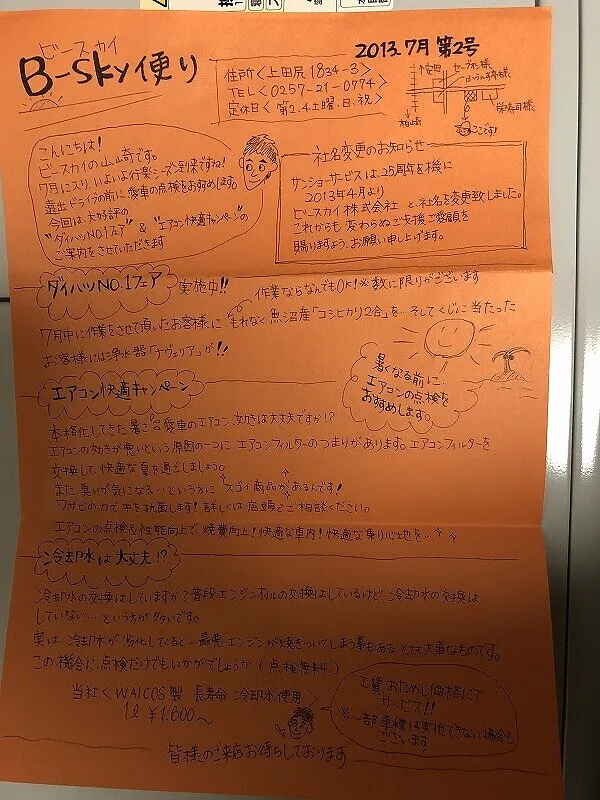 ビースカイ
B-Sky便り
2013.7月 第2号
住所<上田尻1834-3>
TEL<0257-21-0774>
定休日<第2.4土曜、日、祝>
セーブオン様
至安田
至柏崎
栄寿司様
ここです!
こんにちは!
ビースカイの山崎です。
7月に入り、いよいよ行楽シーズン到来ですね!
遠出ドライブの前に愛車の点検をおすすめします。
今回は、大好評の
"ダイハツNO.1フェア" & "エアコン快適キャンペーン"の
ご案内をさせていただきます
社名変更のお知らせ
サンショーサービスは、25周年を機に
2013年4月より
ビースカイ株式会社 と、社名を変更致しました。
これからも変わらぬご支援ご愛顧を
賜りますよう、お願い申し上げます。
ダイハツNO.1フェア 実施中!!
作業ならなんでもOK!※数に限りがございます
7月中に作業をさせて頂いたお客様に もれなく魚沼産「コシヒカリ2合」を…そしてくじに当たった
お客様には浄水器「テヴェリア」が!!
暑くなる前に
エアコンの点検を
おすすめします。
エアコン快適キャンペーン
本格化してきた暑さ、愛車のエアコン、効きは大丈夫ですか!?
エアコンの効きが悪いという原因の一つに、エアコンフィルターのつまりがあります。エアコンフィルターを
交換して、快適な夏を過ごしましょう。
また 臭いが気になる…という方に スゴイ商品があるんです!
ワサビの力で車を抗菌します!詳しくは店頭でご相談ください。
エアコンの点検&性能向上で 燃費向上!快適な車内!快適な乗り心地を…
冷却水は大丈夫!?
冷却水の交換はしていますか?普段エンジンオイルの交換はしているけど、冷却水の交換は
していない…という方が多いです。
実は、冷却水が劣化してくると…最悪エンジンが焼きついてしまう事もある、とても大事なものです。
この機会に、点検だけでもいかがでしょうか(点検無料)
当社<WAICOS製 長寿命 冷却水使用>
1ℓ ¥1,600~
工賃 おためし価格にて
サービス!!
※一部車種は実施できない場合も
ございます
皆様のご来店お待ちしております